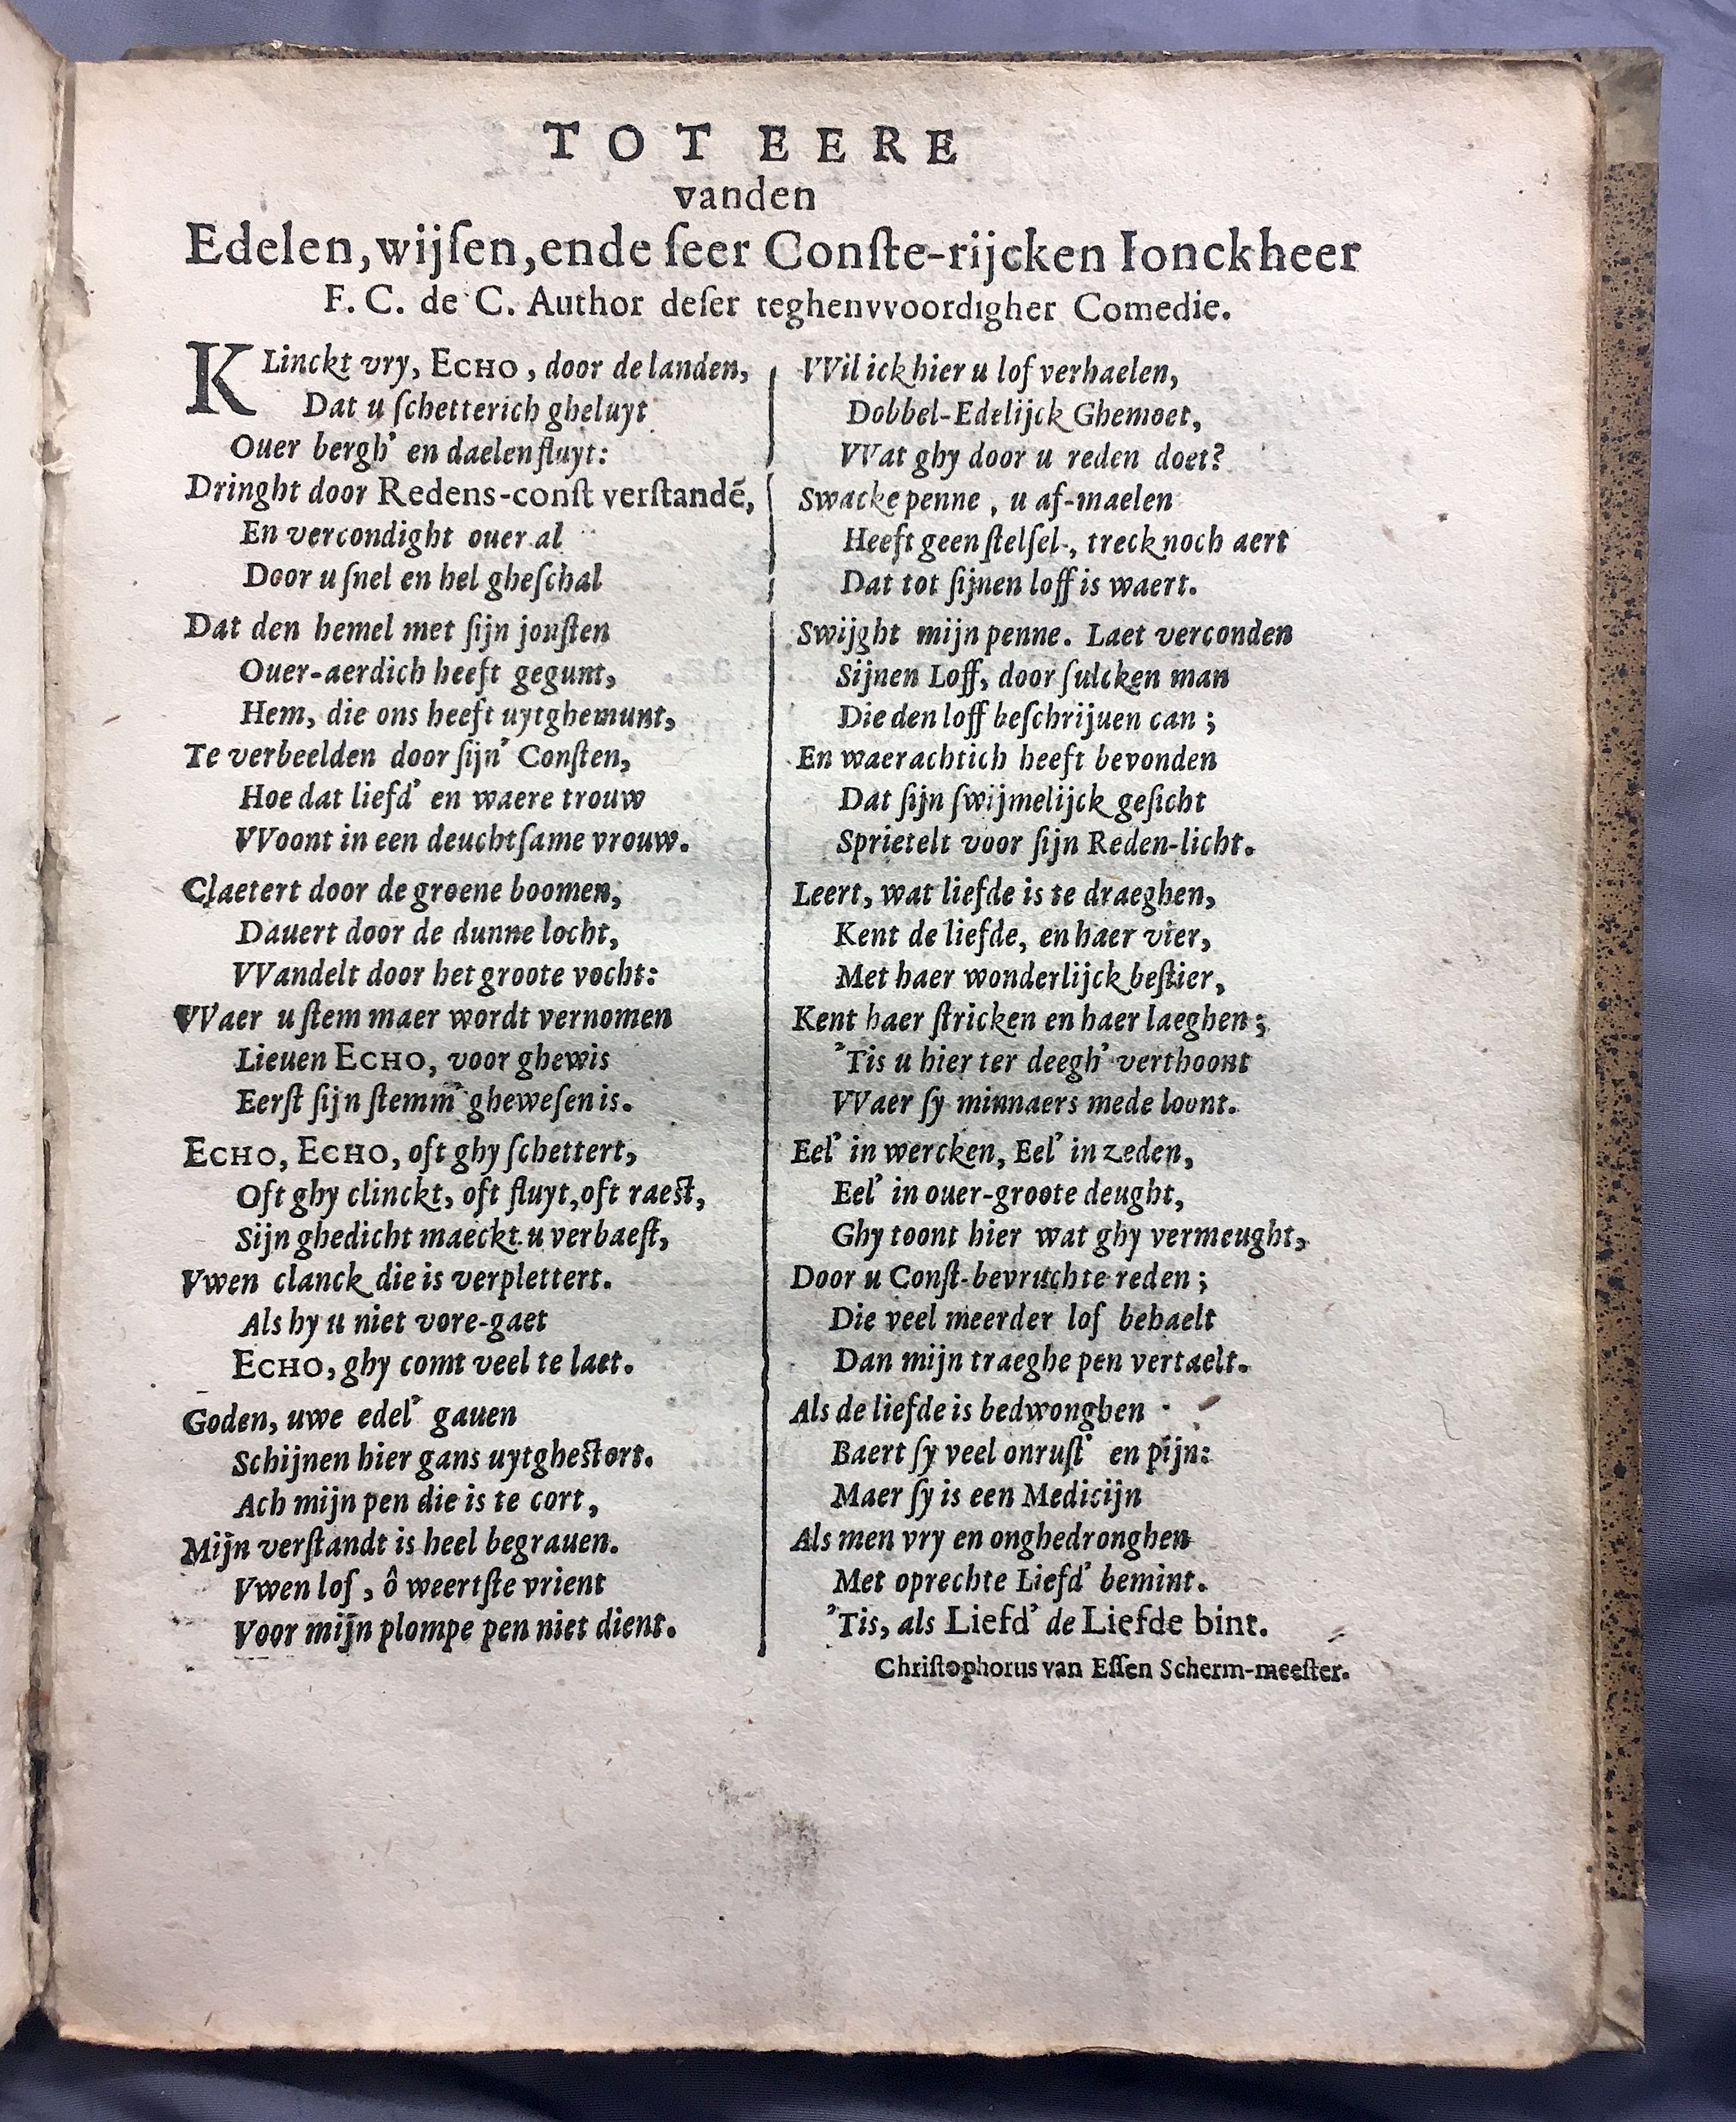 TOT EERE
vanden
Edelen, wijſen, ende ſeer Conſte-rijcken Ionckheer
F. C. de C. Author deſer teghenvvoordigher Comedie.
KLinckt vry, ECHO, door de landen,
Dat u ſchetterich gheluyt
Ouer bergh' en daelen fluyt:
Dringht door Redens-conſt verſtandẽ,
En vercondight ouer al
Door u ſnel en hel gheſchal
Dat den hemel met ſijn jonſten
Ouer-aerdich heeft gegunt,
Hem, die ons heeft uytghemunt,
Te verbeelden door ſijn' Conſten,
Hoe dat liefd' en waere trouw
VVoont in een deuchtſame vrouw.
Claetert door de groene boomen,
Dauert door de dunne locht,
VVandelt door het groote vocht:
VVaer u ſtem maer wordt vernomen
Lieuen ECHO, voor ghewis
Eerſt ſijn ſtemm' gheweſen is.
ECHO, ECHO, oft ghy ſchettert,
Oft ghy clinckt, oft fluyt, oft raeſt,
Sijn ghedicht maeckt u verbaeſt,
Vwen clanck die is verplettert.
Als hy u niet vore-gaet
ECHO, ghy comt veel te laet.
Goden, uwe edel' gauen
Schijnen hier gans uytgheſtort.
Ach mijn pen die is te cort,
Mijn verſtandt is heel begrauen.
Vwen lof, ô weertſte vrient
Voor mijn plompe pen niet dient.
VVil ick hier u lof verhaelen,
Dobbel-Edelijck Ghemoet,
VVat ghy door u reden doet?
Swacke penne, u af-maelen
Heeft geen ſtelſel-, treck noch aert
Dat tot ſijnen loff is waert.
Swijght mijn penne. Laet verconden
Sijnen Loff, door ſulcken man
Die den loff beſchrijuen can;
En waerachtich heeft bevonden
Dat ſijn ſwijmelijck geſicht
Sprietelt voor ſijn Reden-licht.
Leert, wat liefde is te draeghen,
Kent de liefde, en haer vier,
Met haer wonderlijck beſtier,
Kent haer ſtricken en haer laeghen;
'Tis u hier ter deegh' verthoont
VVaer ſy minnaers mede loont.
Eel' in wercken, Eel' in zeden,
Eel' in ouer-groote deught,
Ghy toont hier wat ghy vermeught,
Door u Conſt-bevruchte reden;
Die veel meerder lof behaelt
Dan mijn traeghe pen vertaelt.
Als de liefde is bedwonghen
Baert ſy veel onruſt' en pijn:
Maer ſy is een Medicijn
Als men vry en onghedronghen
Met oprechte Liefd' bemint.
'Tis, als Liefd' de Liefde bint.
Chriſtophorus van Eſſen Scherm-meeſter.